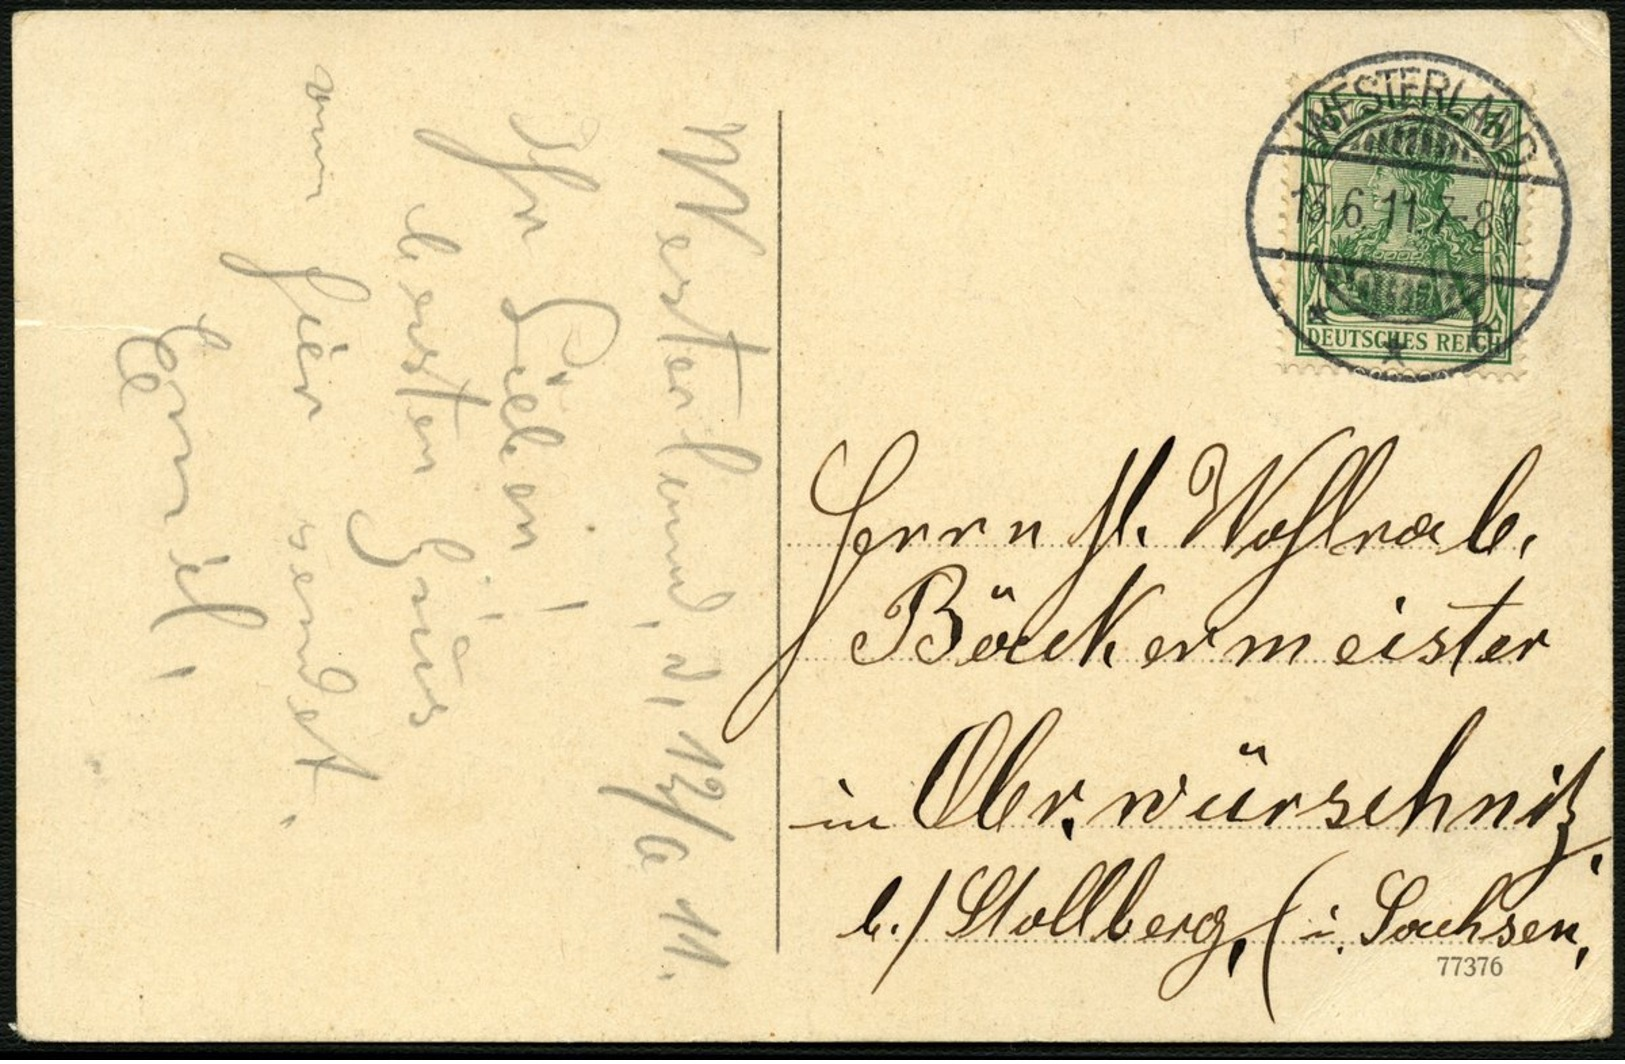 Westerland, d, 12/6 11.
Ihr Lieben!
besten Grüss
von hier sendet
Emil,
WESTERLAND
13.6.11.7-8V.
DEUTSCHES REICH
Herrn M. Wohlrab.
Bäckermeister
in Obr. würschnitz,
b./Stollberg, (i. Sachsen,
77376